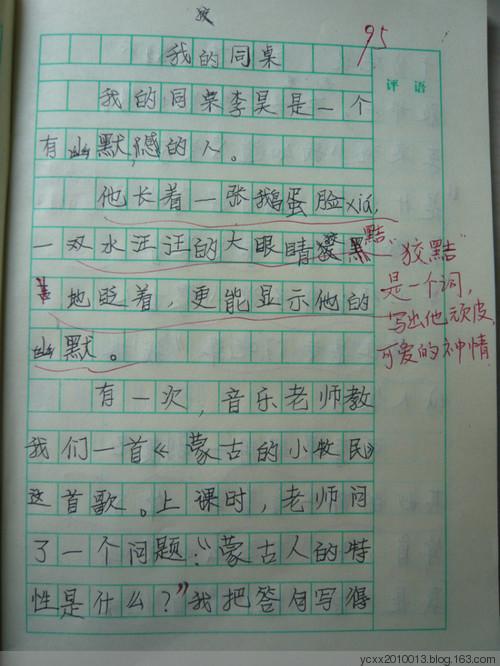 95
我的同桌
评语
我的同桌李昊是一个
有幽默感的人。
他长着一张鹅蛋脸xia,
一双水汪汪的大眼睛狡黠
地眨着,更能显示他的
幽默。
狡黠"
是一个词,
写出他顽皮
可爱的神情
有一次,音乐老师教
我们一首《蒙古的小牧民》
这首歌。上课时,老师问
了一个问题:"蒙古人的特
性是什么?"我把答句写得
ycxx2010013.blog.163.com